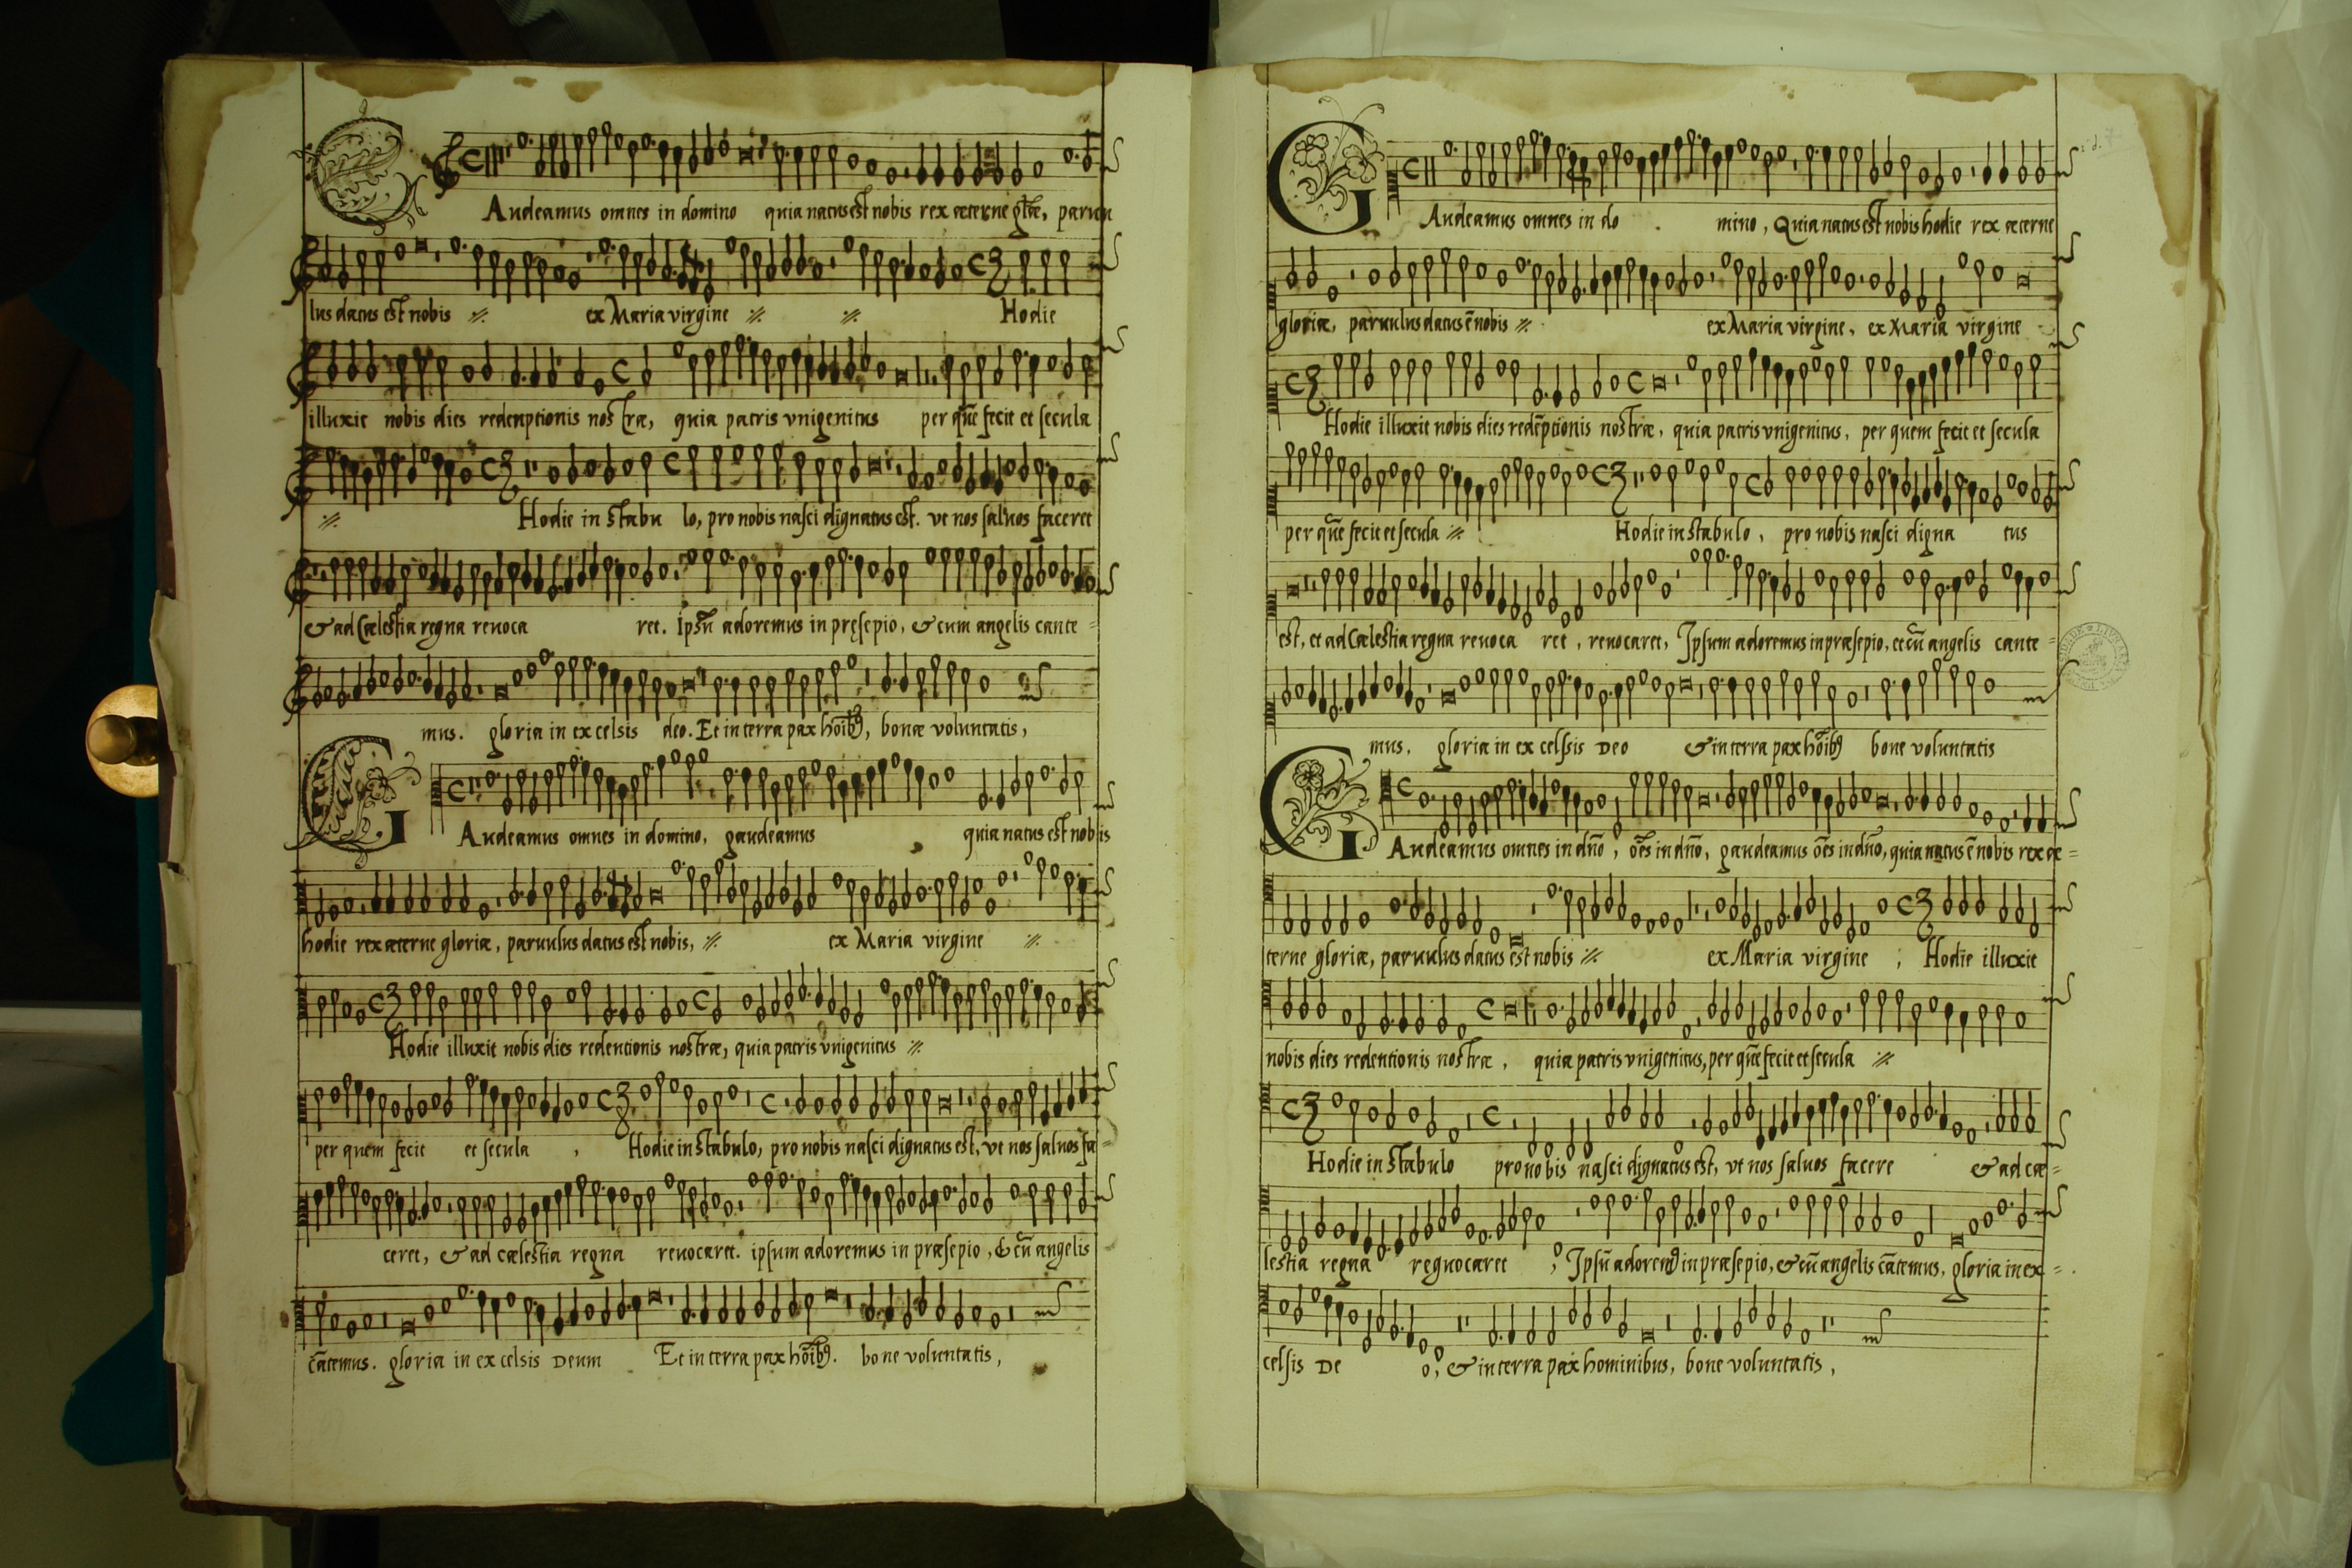 GAudeamus omnes in domino quia natus est nobis rex æterne glīæ, paruu
lus datus est nobis ·//· ex Maria virgine ·//· ·//· Hodie
illuxit nobis dies redenptionis nostræ, quia patris vnigenitus per quē fecit et secula
·//· Hodie in stabu lo, pro nobis nasci dignatus est. vt nos saluos faceret
& ad Cælestia regna reuoca ret. Ipsū adoremus in pręsepio, & cum angelis cante=
mus. gloria in excelsis deo. Et in terra pax hōib9, bonæ voluntatis,
GAudeamus omnes in domino, gaudeamus quia natus est nobis
hodie rex æterne gloriæ, paruulus datus est nobis, ·//· ex Maria virgine ·//·
Hodie illuxit nobis dies redentionis nostræ, quia patris vnigenitus ·//·
per quem fecit et secula , Hodie in stabulo, pro nobis nasci dignatus est, vt nos saluos fa=
ceret, & ad cælestia regna reuocaret. ipsum adoremus in præsepio, & cū angelis
cātemus. gloria in excelsis Deum Et in terra pax hōib9. bone voluntatis,
GAudeamus omnes in do . mino, Quia natus est nobis hodie rex æterne
gloriæ, paruulus datus ē nobis ·//· ex Maria virgine, ex Maria virgine
Hodie illuxit nobis dies redēptionis nostræ, quia patris vnigenitus, per quem fecit et secula
per quē fecit et secula ·//· Hodie in stabulo, pro nobis nasci digna tus
est, et ad Cælestia regna reuoca ret, reuocaret, Ipsum adoremus in præsepio, et cū angelis cante=
mus. gloria in ex celsis Deo & in terra pax hōib9 bone voluntatis
GAudeamus omnes in dño, oēs in dño, gaudeamus oēs in dño, quia natus ē nobis rex æ=
terne gloriæ, paruulus datus est nobis ·//· ex Maria virgine ; Hodie illuxit
nobis dies redentionis nostræ, quia patris vnigenitus, per quē fecit et secula ·//·
Hodie in stabulo pro nobis nasci dignatus est, vt nos saluos facere & ad cæ=
lestia regna regnocaret ; Ipsū adorem9 in præsepio, & cū angelis cātemus, gloria in ex=
celsis De o, & in terra pax hominibus, bone voluntatis,